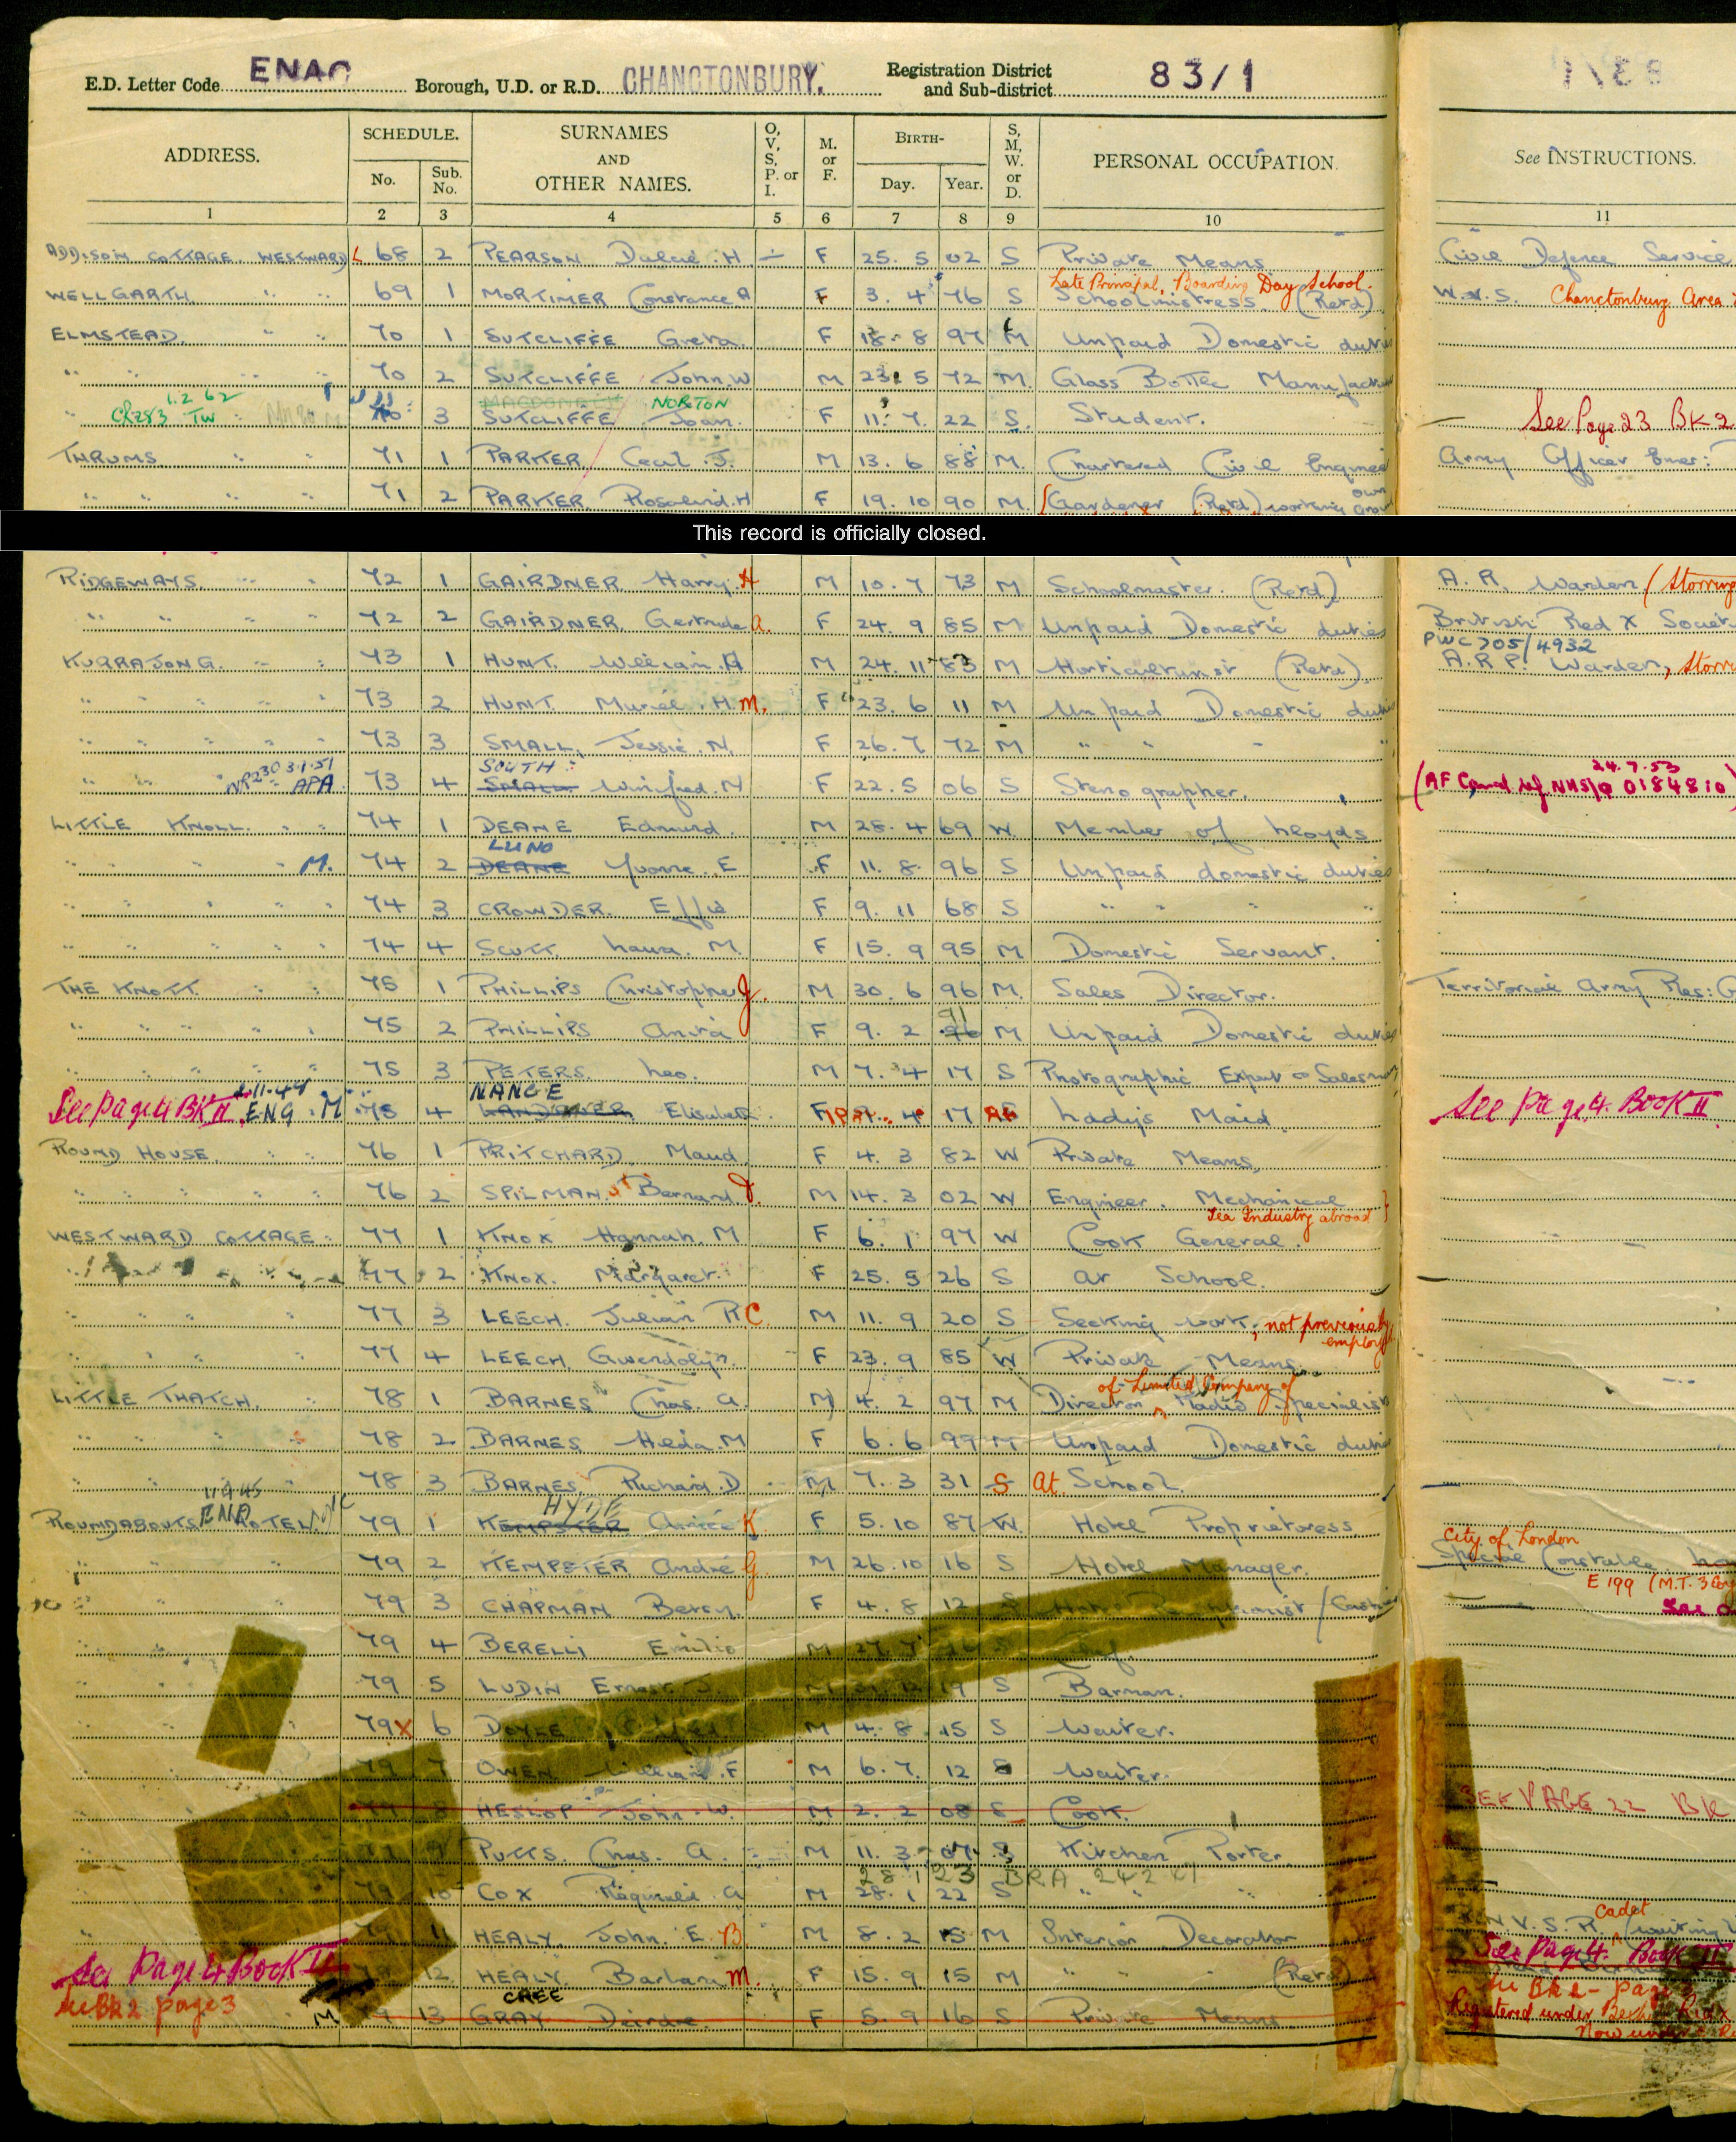 E.D. Letter Code ENAC Borough, U.D. or R.D. CHANCTONBURY. Registration District and Sub-district 83/1
ADDRESS. SCHEDULE. No. Sub. No. SURNAMES AND OTHER NAMES. O, V, S, P. or I. M. or F. BIRTH- Day. Year. S, M, W. or D. PERSONAL OCCUPATION. See INSTRUCTIONS.
1 2 3 4 5 6 7 8 9 10 11
ADDISON COTTAGE WESTWARD 68 2 PEARSON Dulcie H — F 25. 5 02 S Private Means Civil Defence Service
Late Principal, Boarding Day School.
WELLGARTH 69 1 MORTIMER Constance A F 3. 4 76 S Schoolmistress (Retd) W.V.S. Chanctonbury Area
ELMSTEAD 70 1 SUTCLIFFE Greta F 18. 8 97 M Unpaid Domestic duties
" 70 2 SUTCLIFFE John W M 23. 5 72 M. Glass Bottle
1.2.62 NORTON
CR283 TW 70 3 SUTCLIFFE Joan. F 11. 7. 22 S. Student. See Page 23 BK 2
THRUMS 71 1 PARKER Cecil J. M 13. 6 88 M. Chartered Civil Engineer Army Officer Emer:
" 71 2 PARKER Rosalind H F 19. 10 90 M. Gardener (Retd) working own
This record is officially closed.
RIDGEWAYS. 72 1 GAIRDNER Harry A M 10. 7 73 M Schoolmaster. (Retd) A. R. Warden (Storring
" 72 2 GAIRDNER, Gertrude A. F 24. 9 85 M Unpaid Domestic duties British Red X Societ
PWC 705/4932
KURRAJONG. 73 1 HUNT. William A M 24. 11 83 M Horticulturist (Retd). A.R.P. Warden, Storr
" 73 2 HUNT Muriel H. M. F 23. 6 11 M Unpaid Domestic duties
" 73 3 SMALL, Jessie. N. F 26. 7 72 M " " "
SOUTH 24.7.53
NR230 3.1.51 APA 73 4 SMALL Winifred. N F 22. 5 06 S Stenographer. (AF Cond ref NHS/9 0184810)
LITTLE KNOLL. 74 1 DEANE Edmund. M 28. 4 69 W. Member of Lloyds
LUND
M. 74 2 DEANE Yvonne. E F 11. 8. 96 S Unpaid domestic duties
" 74 3 CROWDER. Effie F 9. 11 68 S " " "
" 74 4 SCOTT Laura. M. F 15. 9 95 M Domestic Servant.
THE KNOTT. 75 1 PHILLIPS Christopher J. M 30. 6 96 M. Sales Director. Territorial Army Res:
91
" 75 2 PHILLIPS Anita F 9. 2 96 M Unpaid Domestic duties
" 75 3 PETERS. Leo. M 7. 4 17 S Photographic Expert Salesman
NANCE
See page 4 BK II 2.11.44 ENG. M 75 4 Elisabeth. F 4 17 Lady's Maid See page 4. Book II
ROUND HOUSE. 76 1 PRITCHARD Maud F 4. 3 82 W Private Means,
" 76 2 SPILMAN Bernard. M 14. 3 02 W Engineer. Mechanical
Tea Industry abroad
WESTWARD COTTAGE 77 1 KNOX Hannah. M F 6. 1 97 W Cook General.
77 2 KNOX. Margaret. F 25. 5 26 S At School.
" 77 3 LEECH. Julian R C. M 11. 9 20 S Seeking work, not previously employed
" 77 4 LEECH Gwendolyn. F 23. 9 85 W Private Means.
of Limited Company of
LITTLE THATCH. 78 1 BARNES Chas. A. M 4. 2 97 M Director Radio Specialist
" 78 2 BARNES Hilda. M F 6. 6 99 M Unpaid Domestic duties
" 78 3 BARNES Richard. D M 7. 3 31 S At School.
11945 HYDE
ROUNDABOUTS HOTEL 79 1 KEMPSTER Aimée K F 5. 10 87 W. Hotel Proprietress
City of London
" 79 2 KEMPSTER André G M 26. 10 16 S Hotel Manager. Special Constable
E 199 (M.T. 3
" 79 3 CHAPMAN Betty. F 4. 8 12 S Hotel Receptionist / Cashier
" 79 4 BERELLI Emilio M 27. 7 S Chef.
" 79 5 LUDIN Ernest J. M 19 S Barman.
" 79X 6 DOYLE M 4. 8. 15 S Waiter.
" 79 7 OWEN William. F M 6. 7. 12 S Waiter.
79 8 HESLOP John. W. M 2. 2 08 S Cook. SEE PAGE 22 BK
79 9 PUTTS. Chas. A. M 11. 3 07 S Kitchen Porter
28 1 23 BRA 242
79 10 COX Reginald A M 28. 1 22 S " "
Cadet
79 11 HEALY. John. E. B M 8. 2 15 M Interior Decorator R.N.V.S.R. (waiting
See Page 4 Book II 12 HEALY. Barbara M. F 15. 9 15 M " " (Retd) See Page 4. Book II
See BK 2 page 3 See Bk 2 - page
CHEE
M 79 13 GRAY Deirdre. F 5. 9 16 S Private Means Registered under
Now under